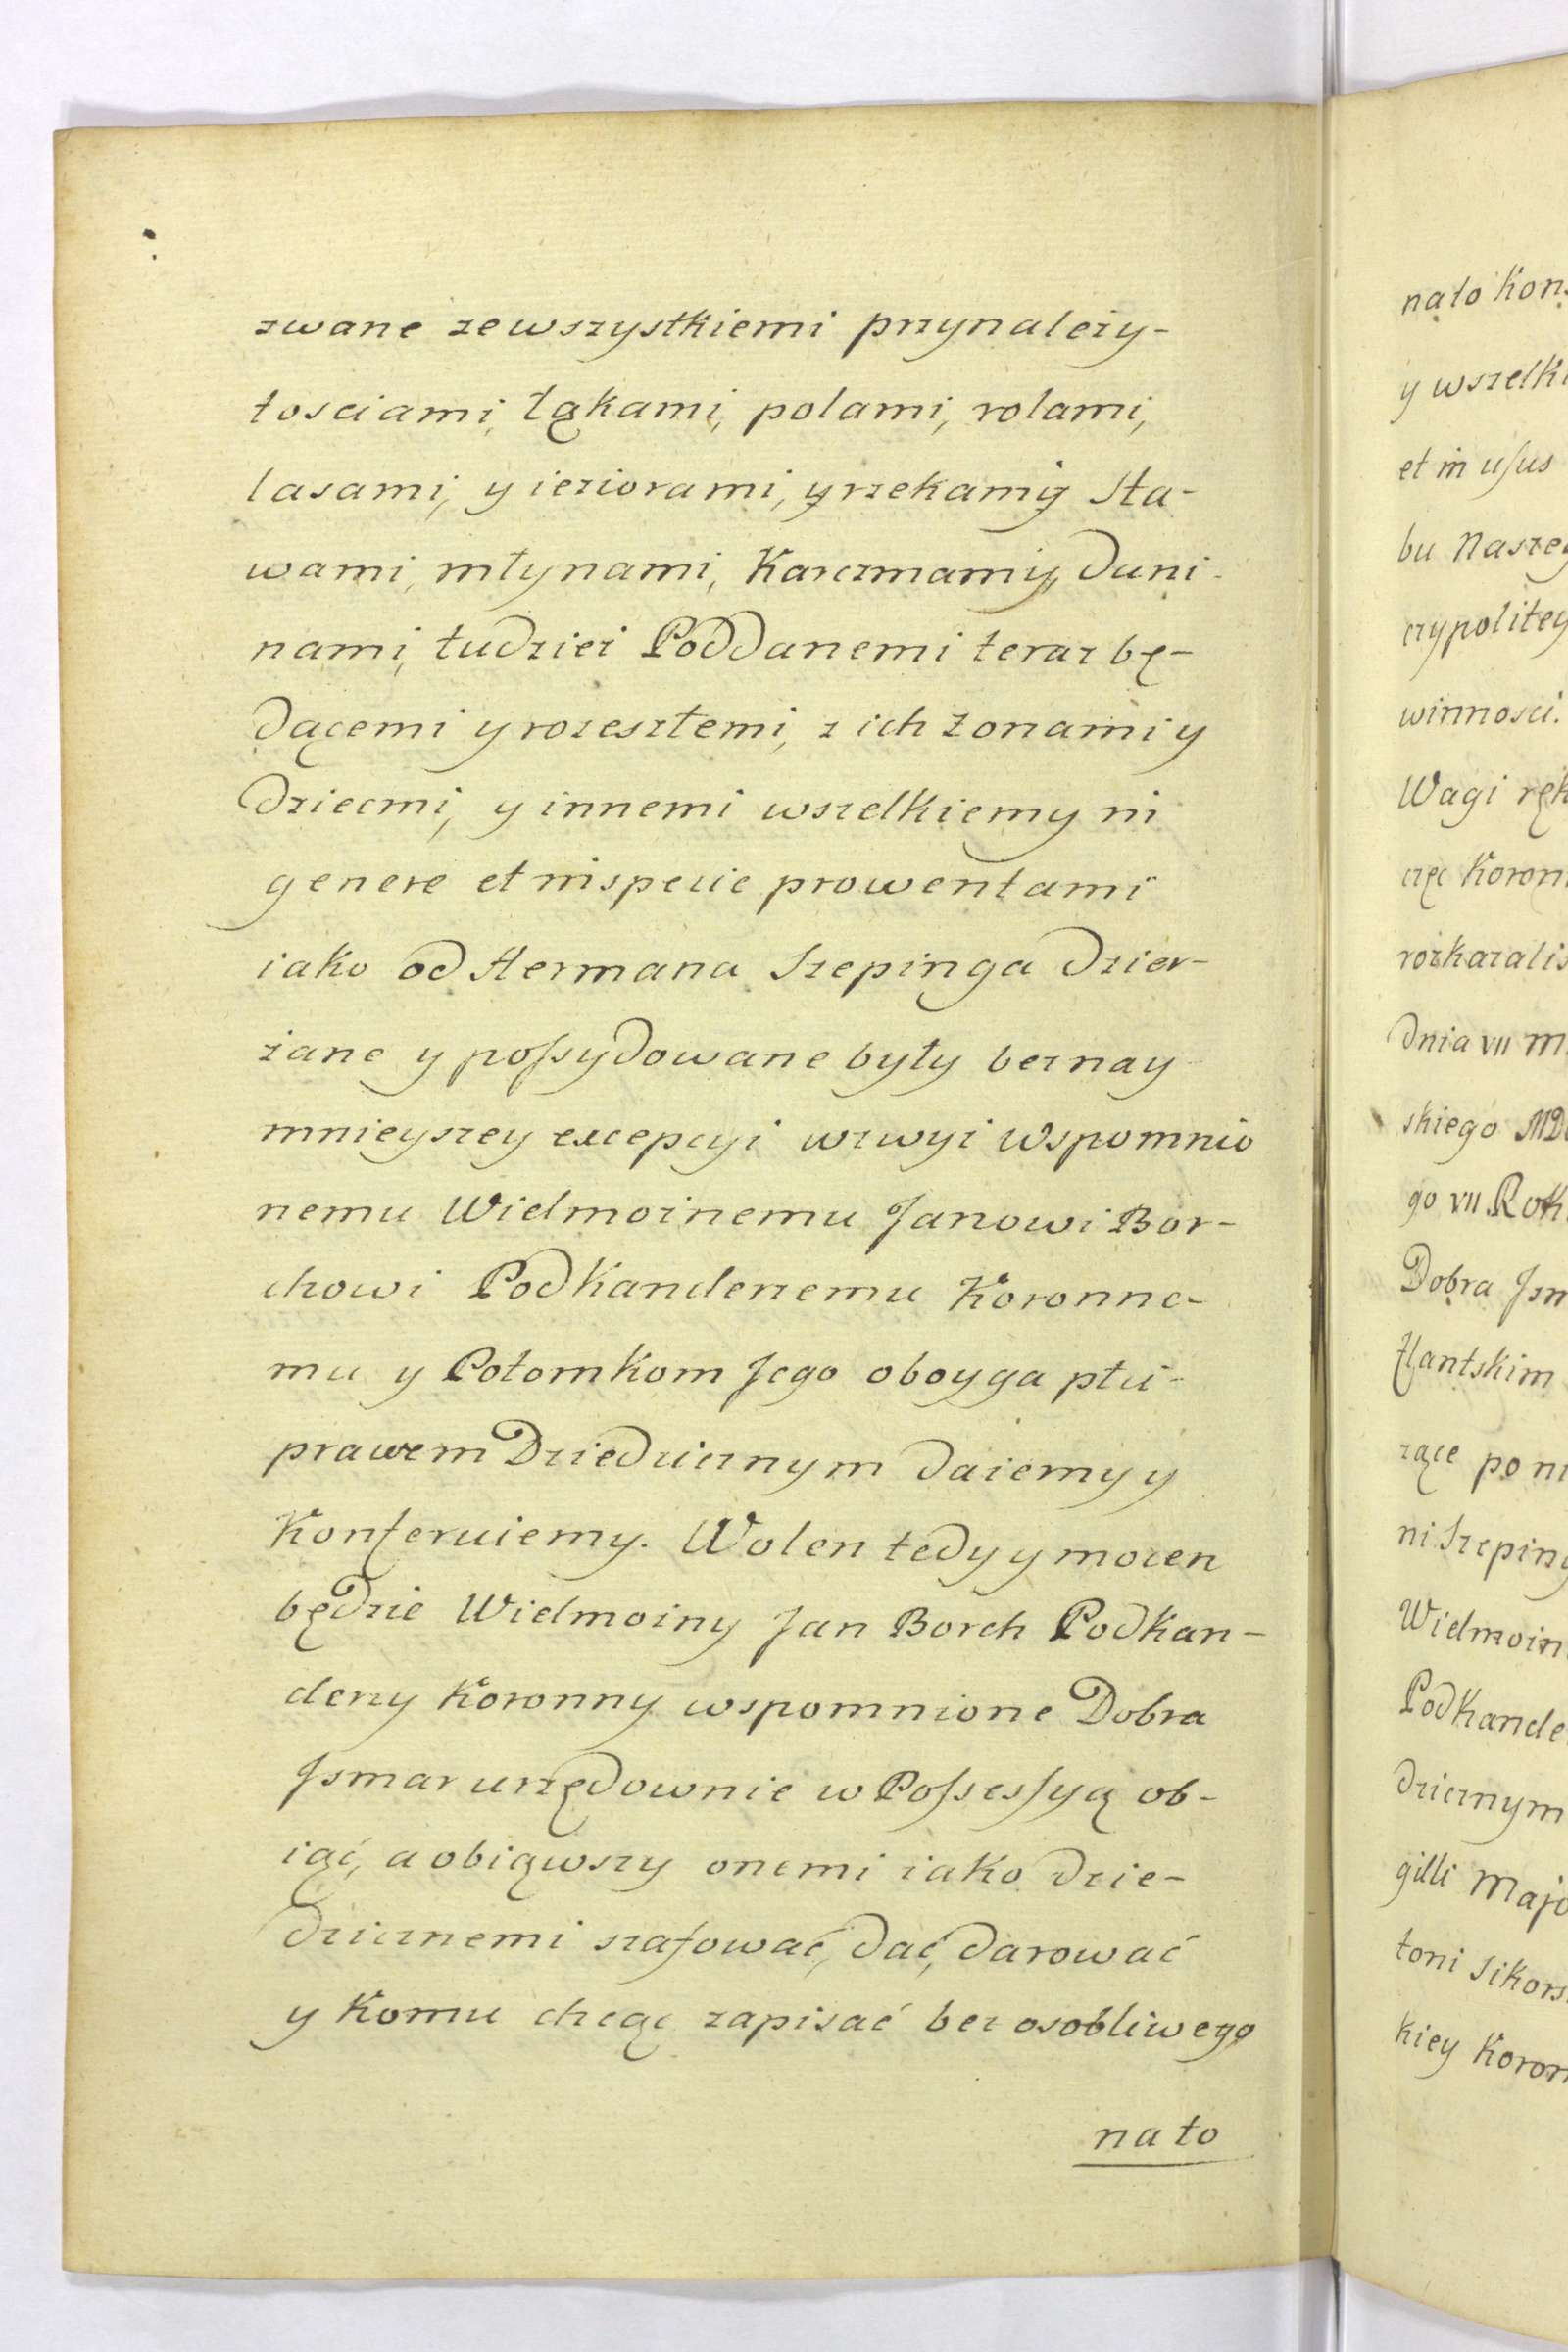 zwane ze wszystkiemi przynależy-
tosciami, łąkami, polami, rolami,
lasami, y ieziorami, y rzekami, Sta-
wami, młynami, Karczmami, Dani-
nami, tudzież Poddanemi teraz bę-
dącemi y rozeszłemi, z ich żonami y
dziecmi, y innemi wszelkiemy in
genere et in specie prowentami
iako od Hermana Szepinga dzier-
żane y possydowane były bez nay-
mnieyszey excepcyi wzwyż wspomnio
nemu Wielmożnemu Janowi Bor-
chowi Podkanclerzemu Koronne-
mu y Potomkom Jego oboyga płci-
prawem Dziedzicznym daiemy y
Konferuiemy. Wolen tedy y mocen
będzie Wielmożny Jan Borch Podkan-
clerzy Koronny wspomnione Dobra
Jsmar urzędownie w Possessyą ob-
iąć, a obiąwszy onemi iako dzie-
dzicznemi szafować, dać, darować
y Komu chcąc zapisać bez osobliwego
na to
nato Kons
y wszelki
et in usus
bu Naszeg
czypolitey
winnosci.
Wagi ręk
częc Koron
rozkazalis
dnia VII M
skiego MD
go VII Rok
Dobra Jsm
flantskim
rące po
ni Szeping
Wielmożn
Podkancle
dzicznym
gilli Majo
toni Sikors
kiey Koron